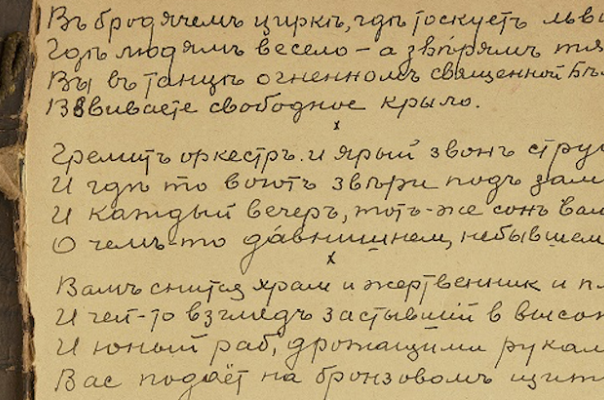 Въ бродячемъ циркѣ, гдѣ тоскуетъ льви
Гдѣ людямъ весело – а звѣрямъ тя
Вы въ танцѣ огненномъ священной Бѣ
Взвиваете свободное крыло.
х
Гремитъ оркестръ. и ярый звонъ стру
И гдѣ то воютъ звѣри подъ зам
И каждый вечеръ, тотъ-же сонъ вам
О чемъ-то давнишнем, небывшем
х
Вамъ снится храм и жертвенник и пл
И чей-то взглядъ застывшій в высо
И юный раб, дрожащими рукам
Вас подаёт на бронзовомъ щит